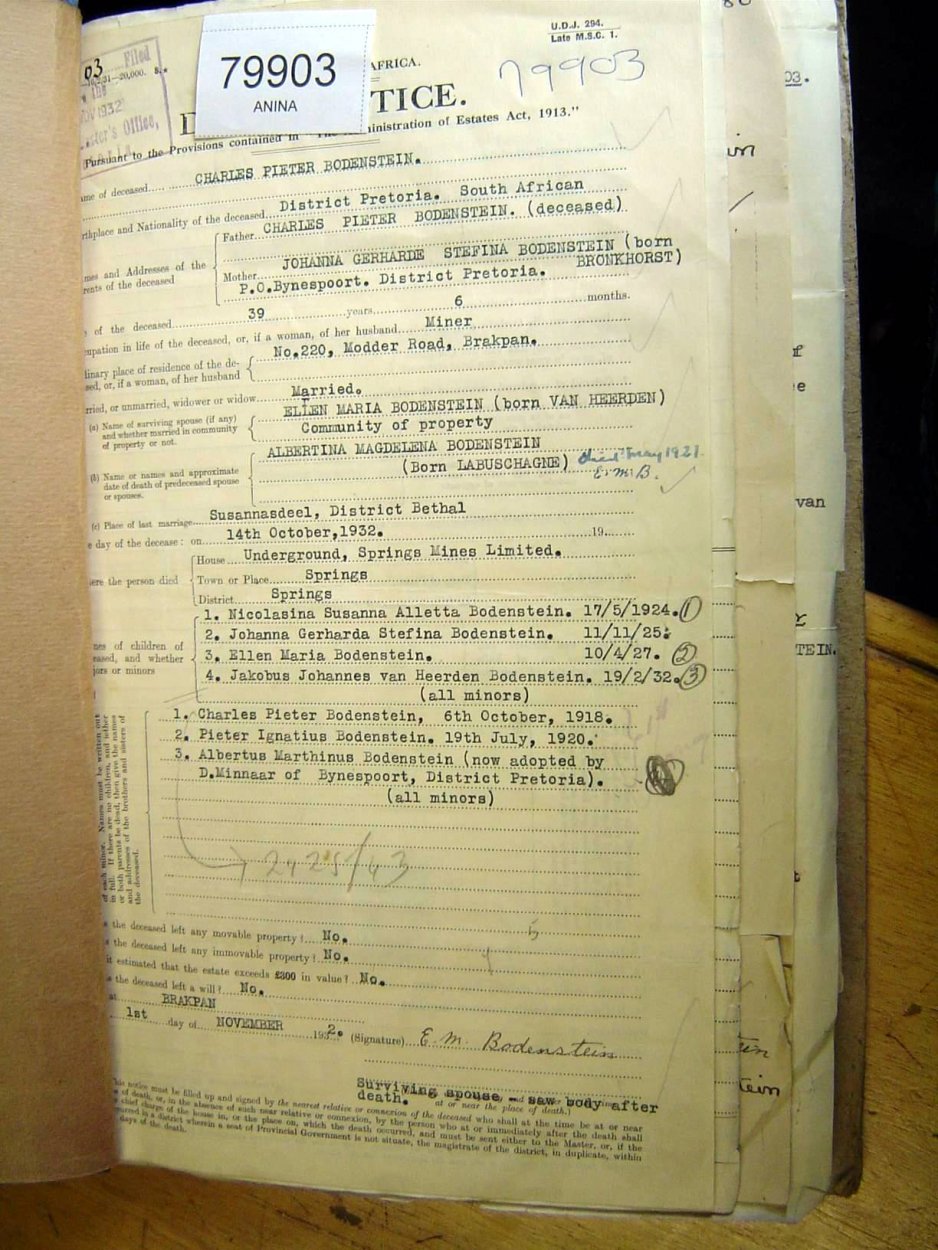 U.D.J. 294.
Late M.S.C. 1.
79903
ANINA
79903
03
Filed
31—20,000. S.
1932
Office,
AFRICA.
TICE.
Pursuant to the Provisions contained in "The Administration of Estates Act, 1913."
me of deceased CHARLES PIETER BODENSTEIN.
rthplace and Nationality of the deceased District Pretoria. South African
Father CHARLES PIETER BODENSTEIN. (deceased)
mes and Addresses of the
rents of the deceased
JOHANNA GERHARDE STEFINA BODENSTEIN (born
Mother BRONKHORST)
P.O.Bynespoort. District Pretoria.
of the deceased 39 years 6 months.
upation in life of the deceased, or, if a woman, of her husband Miner
linary place of residence of the de-
sed, or, if a woman, of her husband
No.220, Modder Road, Brakpan.
rried, or unmarried, widower or widow Married.
(a) Name of surviving spouse (if any)
and whether married in community
of property or not.
ELLEN MARIA BODENSTEIN (born VAN HEERDEN)
Community of property
(b) Name or names and approximate
date of death of predeceased spouse
or spouses.
ALBERTINA MAGDELENA BODENSTEIN
(Born LABUSCHAGNE) died May 1921
E.M.B.
(c) Place of last marriage Susannasdeel, District Bethal
e day of the decease: on 14th October,1932. 19
ere the person died
House Underground, Springs Mines Limited.
Town or Place Springs
District Springs
nes of children of
eased, and whether
jors or minors
1. Nicolasina Susanna Alletta Bodenstein. 17/5/1924. 1
2. Johanna Gerharda Stefina Bodenstein. 11/11/25.
3. Ellen Maria Bodenstein. 10/4/27. 2
4. Jakobus Johannes van Heerden Bodenstein. 19/2/32. 3
(all minors)
of each minor. Names must be written out
in full. If there are no children, and either
or both parents be dead, then give the names
and addresses of the brothers and sisters of
the deceased.
1. Charles Pieter Bodenstein, 6th October, 1918.
2. Pieter Ignatius Bodenstein. 19th July, 1920.
3. Albertus Marthinus Bodenstein (now adopted by
D.Minnaar of Bynespoort, District Pretoria).
(all minors)
2425/43
the deceased left any movable property? No.
the deceased left any immovable property? No.
it estimated that the estate exceeds £300 in value? No.
the deceased left a will? No.
at BRAKPAN
1st day of NOVEMBER 1932. (Signature) E. M. Bodenstein
Surviving spouse - saw body after
death.
at or near the place of death.)
his notice must be filled up and signed by the nearest relative or connexion of the deceased who shall at the time be at or near
of death, or, in the absence of such near relative or connexion, by the person who at or immediately after the death shall
chief charge of the house in, or the place on, which the death occurred, and must be sent either to the Master, or, if the
urred in a district wherein a seat of Provincial Government is not situate, the magistrate of the district, in duplicate, within
days of the death.
03.
van
TEIN.